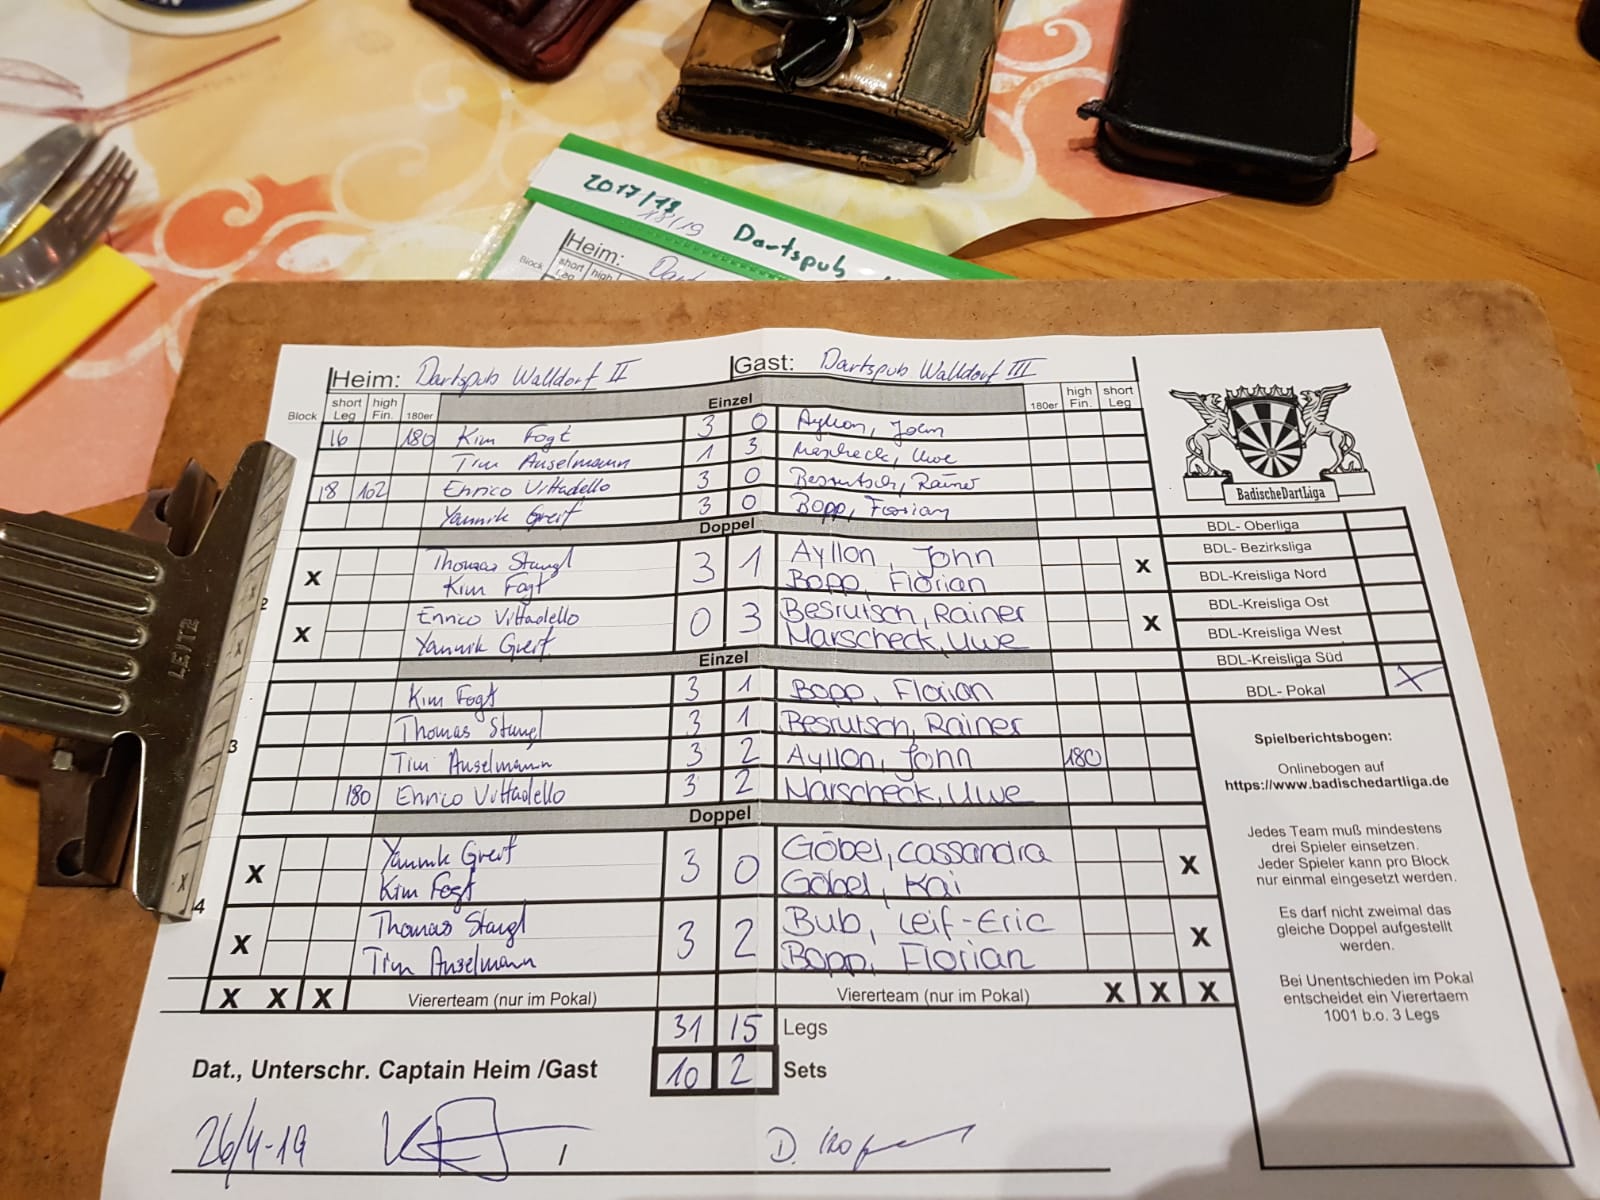 2017/18
18/19
Dartspub
Heim:
Block short high
Heim: Dartspub Walldorf II Gast: Dartspub Walldorf III
Block short Leg high Fin. 180er Einzel 180er high Fin. short Leg
16 180 Kim Fogt 3 0 Ayllon, John
Tim Anselmann 1 3 Mascheck, Uwe
18 102 Enrico Vittadello 3 0 Besrutsch, Rainer
Yannik Greif 3 0 Bopp, Florian
Doppel
x Thomas Stangl 3 1 Ayllon, John x
Kim Fogt Bopp, Florian
2
x Enrico Vittadello 0 3 Besrutsch, Rainer x
Yannik Greif Marscheck, Uwe
Einzel
Kim Fogt 3 1 Bopp, Florian
Thomas Stangl 3 1 Besrutsch, Rainer
3
Tim Anselmann 3 2 Ayllon, John 180
180 Enrico Vittadello 3 2 Marscheck, Uwe
Doppel
x Yannik Greif 3 0 Göbel, Cassandra x
Kim Fogt Göbel, Kai
4
x Thomas Stangl 3 2 Bub, Leif-Eric x
Tim Anselmann Bopp, Florian
X X X Viererteam (nur im Pokal) Viererteam (nur im Pokal) X X X
31 15 Legs
10 2 Sets
Dat., Unterschr. Captain Heim /Gast
26/4-19
BadischeDartLiga
BDL- Oberliga
BDL- Bezirksliga
BDL-Kreisliga Nord
BDL-Kreisliga Ost
BDL-Kreisliga West
BDL-Kreisliga Süd
BDL- Pokal X
Spielberichtsbogen:
Onlinebogen auf
https://www.badischedartliga.de
Jedes Team muß mindestens
drei Spieler einsetzen.
Jeder Spieler kann pro Block
nur einmal eingesetzt werden.
Es darf nicht zweimal das
gleiche Doppel aufgestellt
werden.
Bei Unentschieden im Pokal
entscheidet ein Vierertaem
1001 b.o. 3 Legs
LEITZ